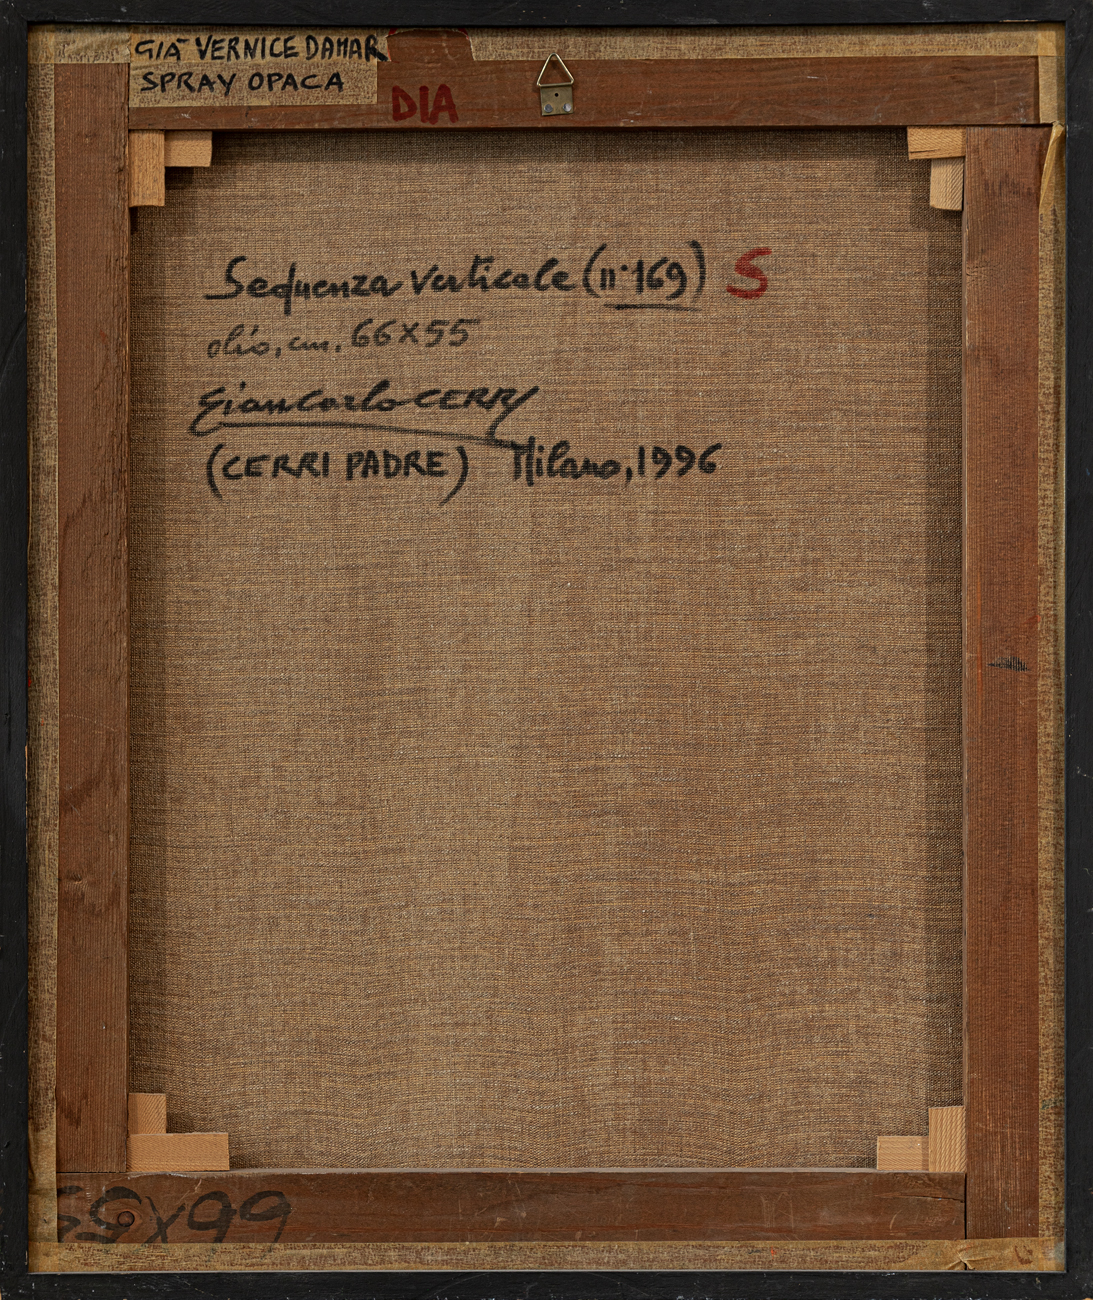 GIÀ VERNICE DAMAR
SPRAY OPACA
DIA
Sequenza Verticale (n°169) S
olio, cm. 66X55
Giancarlo CERRI
(CERRI PADRE) Milano, 1996
X99